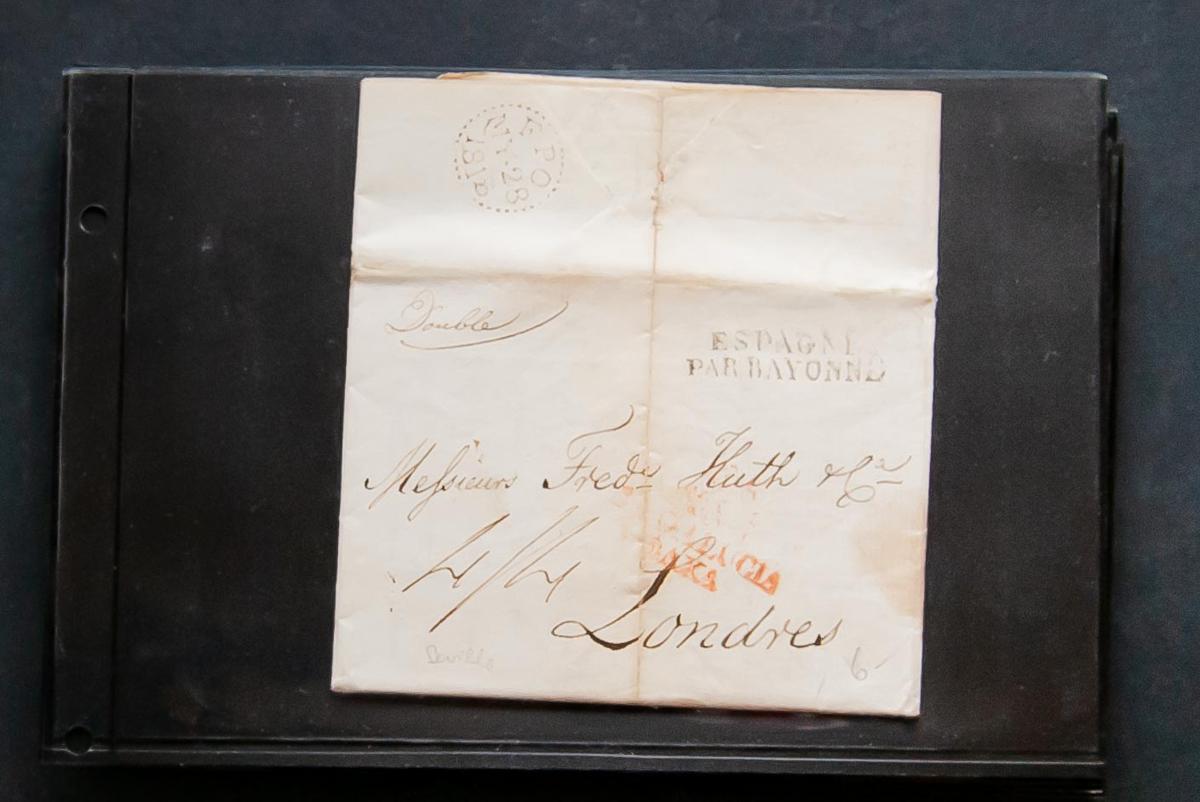 FPO
MY·28
Double
ESPAGNE
PAR BAYONNE
Messieurs Fredk Huth & Co
4/4
Londres
Seville
6